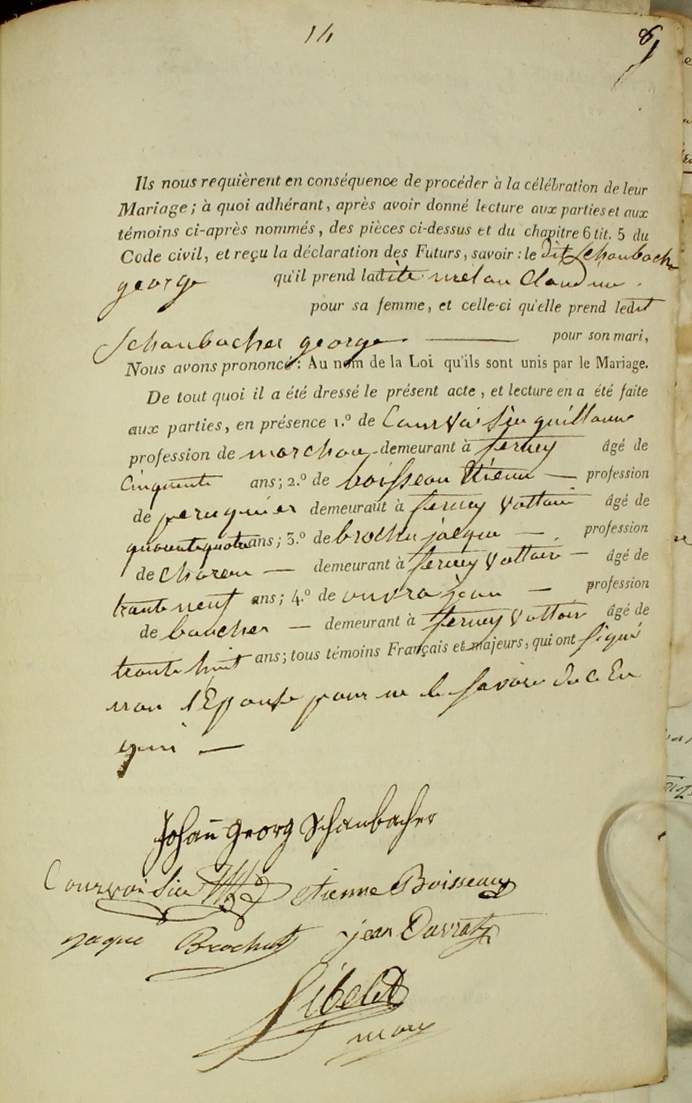 14
Ils nous requièrent en conséquence de procéder à la célébration de leur
Mariage; à quoi adhérant, après avoir donné lecture aux parties et aux
témoins ci-après nommés, des pièces ci-dessus et du chapitre 6 tit. 5 du
Code civil, et reçu la déclaration des Futurs, savoir: le dit Schaubacher
george qu'il prend ladite melan Claudine
pour sa femme, et celle-ci qu'elle prend ledit
Schaubacher george pour son mari,
Nous avons prononcé: Au nom de la Loi qu'ils sont unis par le Mariage.
De tout quoi il a été dressé le présent acte, et lecture en a été faite
aux parties, en présence 1.º de Courvoisier guillaume
profession de marchan demeurant à ferney âgé de
Cinquente ans; 2.º de boisseau Etienne profession
de peruquier demeurant à ferney Voltaire âgé de
quarente quatre ans; 3.º de brochu jacque profession
de Charon demeurant à ferney Voltaire âgé de
trante neuf ans; 4.º de jean profession
de boucher demeurant à ferney Voltaire âgé de
trante huit ans; tous témoins Français et majeurs, qui ont signé
non l'Epouse pour ne le savoir de ce En
quni
Johan̄ Georg Schaubacher
Courvoisier etienne Boisseau
jaque Brochut jean Davrat
Sibelet